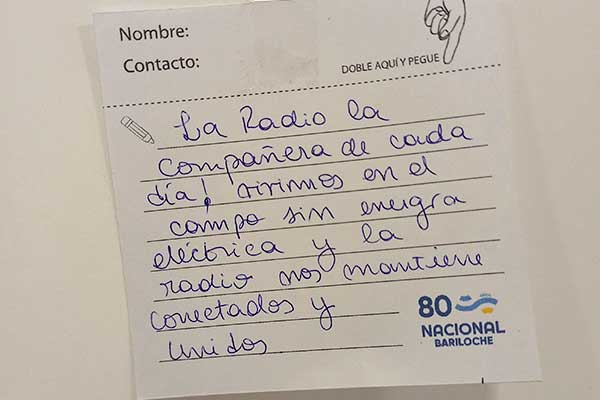 Nombre:
Contacto:
DOBLE AQUÍ Y PEGUE
La Radio la
compañera de cada
día! vivimos en el
campo sin energía
eléctrica y la
radio nos mantiene
conectados y
unidos
80
NACIONAL
BARILOCHE